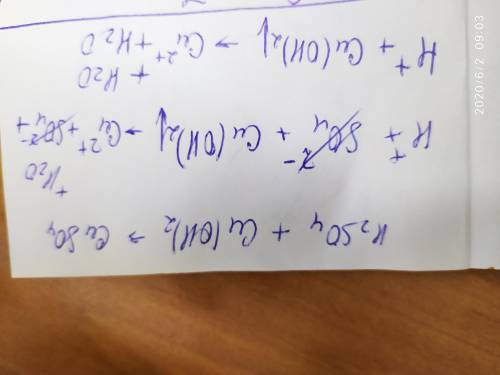 H₂SO₄ + Cu(OH)₂ → CuSO₄
+ H₂O
H⁺ + SO₄²⁻ + Cu(OH)₂↓ → Cu²⁺ + SO₄²⁻ +
+ H₂O
H⁺ + Cu(OH)₂↓ → Cu²⁺ + H₂O
2020/6/2 09:03